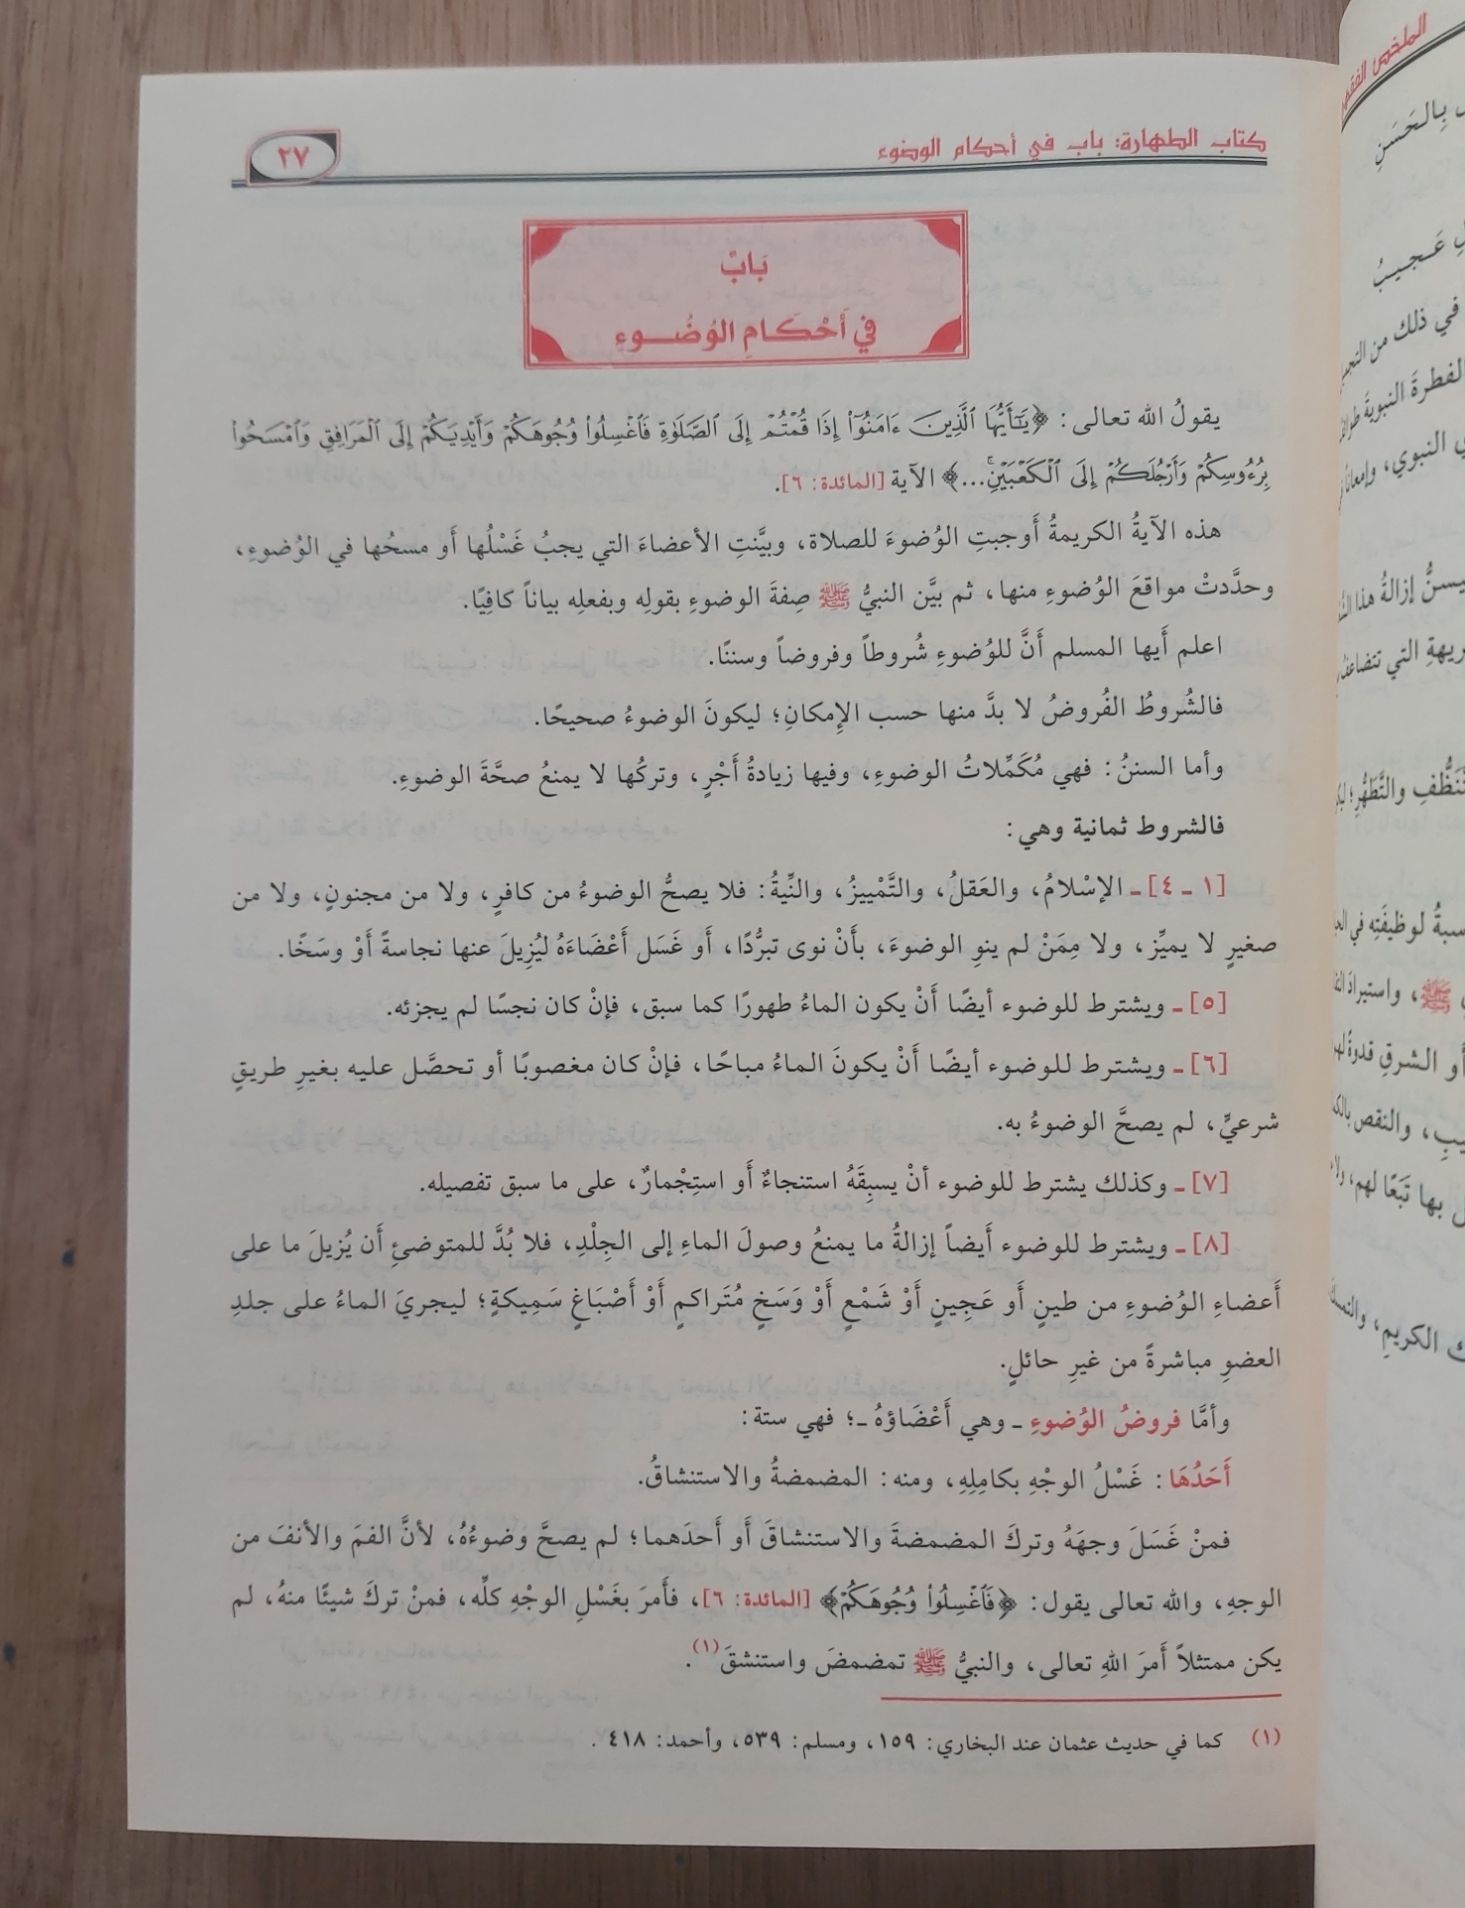 كتاب الطهارة: باب في أحكام الوضوء
٢٧
بَابٌ
في أَحْكَامِ الوُضُوءِ
يقولُ الله تعالى: ﴿يَٰٓأَيُّهَا ٱلَّذِينَ ءَامَنُوٓاْ إِذَا قُمۡتُمۡ إِلَى ٱلصَّلَوٰةِ فَٱغۡسِلُواْ وُجُوهَكُمۡ وَأَيۡدِيَكُمۡ إِلَى ٱلۡمَرَافِقِ وَٱمۡسَحُواْ
بِرُءُوسِكُمۡ وَأَرۡجُلَكُمۡ إِلَى ٱلۡكَعۡبَيۡنِۚ...﴾ الآية [المائدة: ٦].
هذه الآيةُ الكريمةُ أَوجبتِ الوُضوءَ للصلاة، وبيَّنتِ الأعضاءَ التي يجبُ غَسْلُها أَو مسحُها في الوُضوءِ،
وحدَّدتْ مواقعَ الوُضوءِ منها، ثم بيَّن النبيُّ ﷺ صِفةَ الوضوءِ بقولِه وبفعلِه بياناً كافِيًا.
اعلم أَيها المسلم أَنَّ للوُضوءِ شُروطاً وفروضاً وسننًا.
فالشُروطُ الفُروضُ لا بدَّ منها حسب الإِمكانِ؛ ليكونَ الوضوءُ صحيحًا.
وأما السننُ: فهي مُكَمِّلاتُ الوضوءِ، وفيها زيادةُ أَجْرٍ، وتركُها لا يمنعُ صحَّةَ الوضوءِ.
فالشروط ثمانية وهي:
[١ ـ ٤] ـ الإسْلامُ، والعَقلُ، والتَّمْييزُ، والنِّيةُ: فلا يصحُّ الوضوءُ من كافرٍ، ولا من مجنونٍ، ولا من
صغيرٍ لا يميِّز، ولا مِمَنْ لم ينوِ الوضوءَ، بأَنْ نوى تبرُّدًا، أَو غَسَل أَعْضَاءَهُ ليُزِيلَ عنها نجاسةً أَوْ وسَخًا.
[٥] ـ ويشترط للوضوء أيضًا أَنْ يكون الماءُ طهورًا كما سبق، فإنْ كان نجسًا لم يجزئه.
[٦] ـ ويشترط للوضوء أيضًا أَنْ يكونَ الماءُ مباحًا، فإنْ كان مغصوبًا أو تحصَّل عليه بغيرِ طريقٍ
شرعيٍّ، لم يصحَّ الوضوءُ به.
[٧] ـ وكذلك يشترط للوضوء أنْ يسبِقَهُ استنجاءٌ أَو استِجْمارٌ، على ما سبق تفصيله.
[٨] ـ ويشترط للوضوء أَيضاً إزالةُ ما يمنعُ وصولَ الماءِ إلى الجِلْدِ، فلا بُدَّ للمتوضئِ أَن يُزيلَ ما على
أَعضاءِ الوُضوءِ من طينٍ أَو عَجِينٍ أَوْ شَمْعٍ أَوْ وَسَخٍ مُتَراكمٍ أَوْ أَصْبَاغٍ سَمِيكةٍ؛ ليجريَ الماءُ على جلدِ
العضوِ مباشرةً من غيرِ حائلٍ.
وأمَّا فروضُ الوُضوءِ ـ وهي أَعْضَاؤهُ ـ؛ فهي ستة:
أَحَدُهَا: غَسْلُ الوجْهِ بكامِلِهِ، ومنه: المضمضةُ والاستنشاقُ.
فمنْ غَسَلَ وجهَهُ وتركَ المضمضةَ والاستنشاقَ أَو أَحدَهما؛ لم يصحَّ وضوءُهُ، لأنَّ الفمَ والأنفَ من
الوجهِ، والله تعالى يقول: ﴿فَٱغۡسِلُواْ وُجُوهَكُمۡ﴾ [المائدة: ٦]، فأَمرَ بغَسْلِ الوجْهِ كلِّه، فمنْ تركَ شيئًا منهُ، لم
يكن ممتثلاً أَمرَ اللهِ تعالى، والنبيُّ ﷺ تمضمضَ واستنشقَ(١).
(١) كما في حديث عثمان عند البخاري: ١٥٩، ومسلم: ٥٣٩، وأحمد: ٤١٨.
الملخص
بِالحَسَنِ
عَجيبُ
في ذلك من
الفطرةَ النبويةَ
النبوي،
إزالةُ هذا
التي
والتَّطَهُّرِ؛
لوظيفَتِه في
ﷺ،
أَو الشرقِ قدوةً
والنقص
بها تَبَعًا لهم،
الكريمِ،